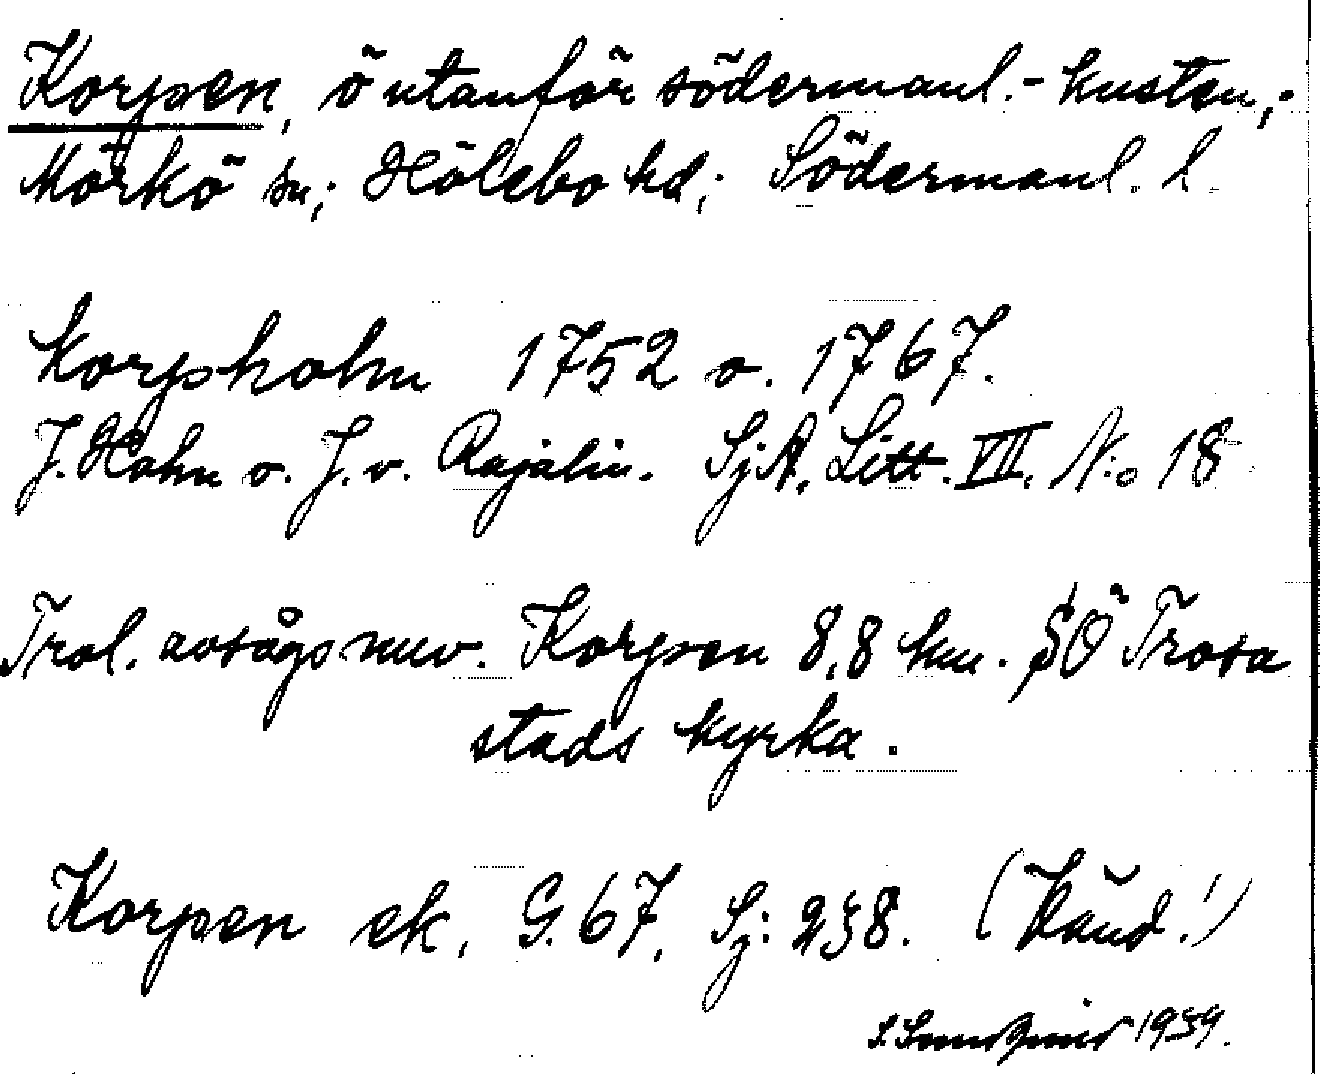 Korpen, ö utanför södermanl.-kusten,
Mörkö sn; Hölebo hd; Södermanl. l.
Korpholm 1752 o. 1767.
J. Hahn o. J. v. Rajalin. SjA. Litt. VII. N:o 18
Trol. avsågs nuv. Korpen 8,8 km. SÖ Trosa
stads kyrka.
Korpen ek. G. 67, Sj: 238. (Känd!)
1939.